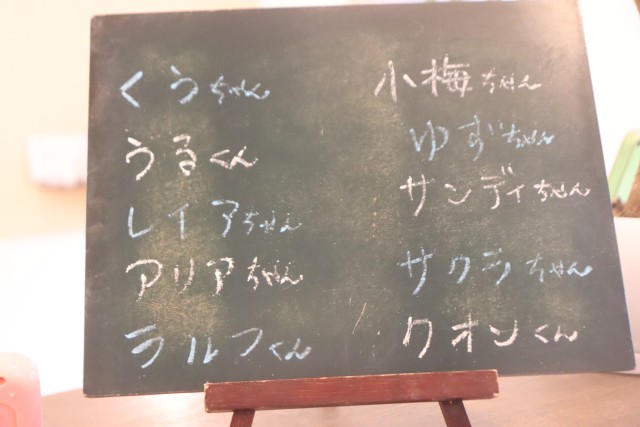 くうちゃん
うるくん
レイアちゃん
アリアちゃん
ラルフくん
小梅ちゃん
ゆずちゃん
サンディちゃん
サクラちゃん
クオンくん